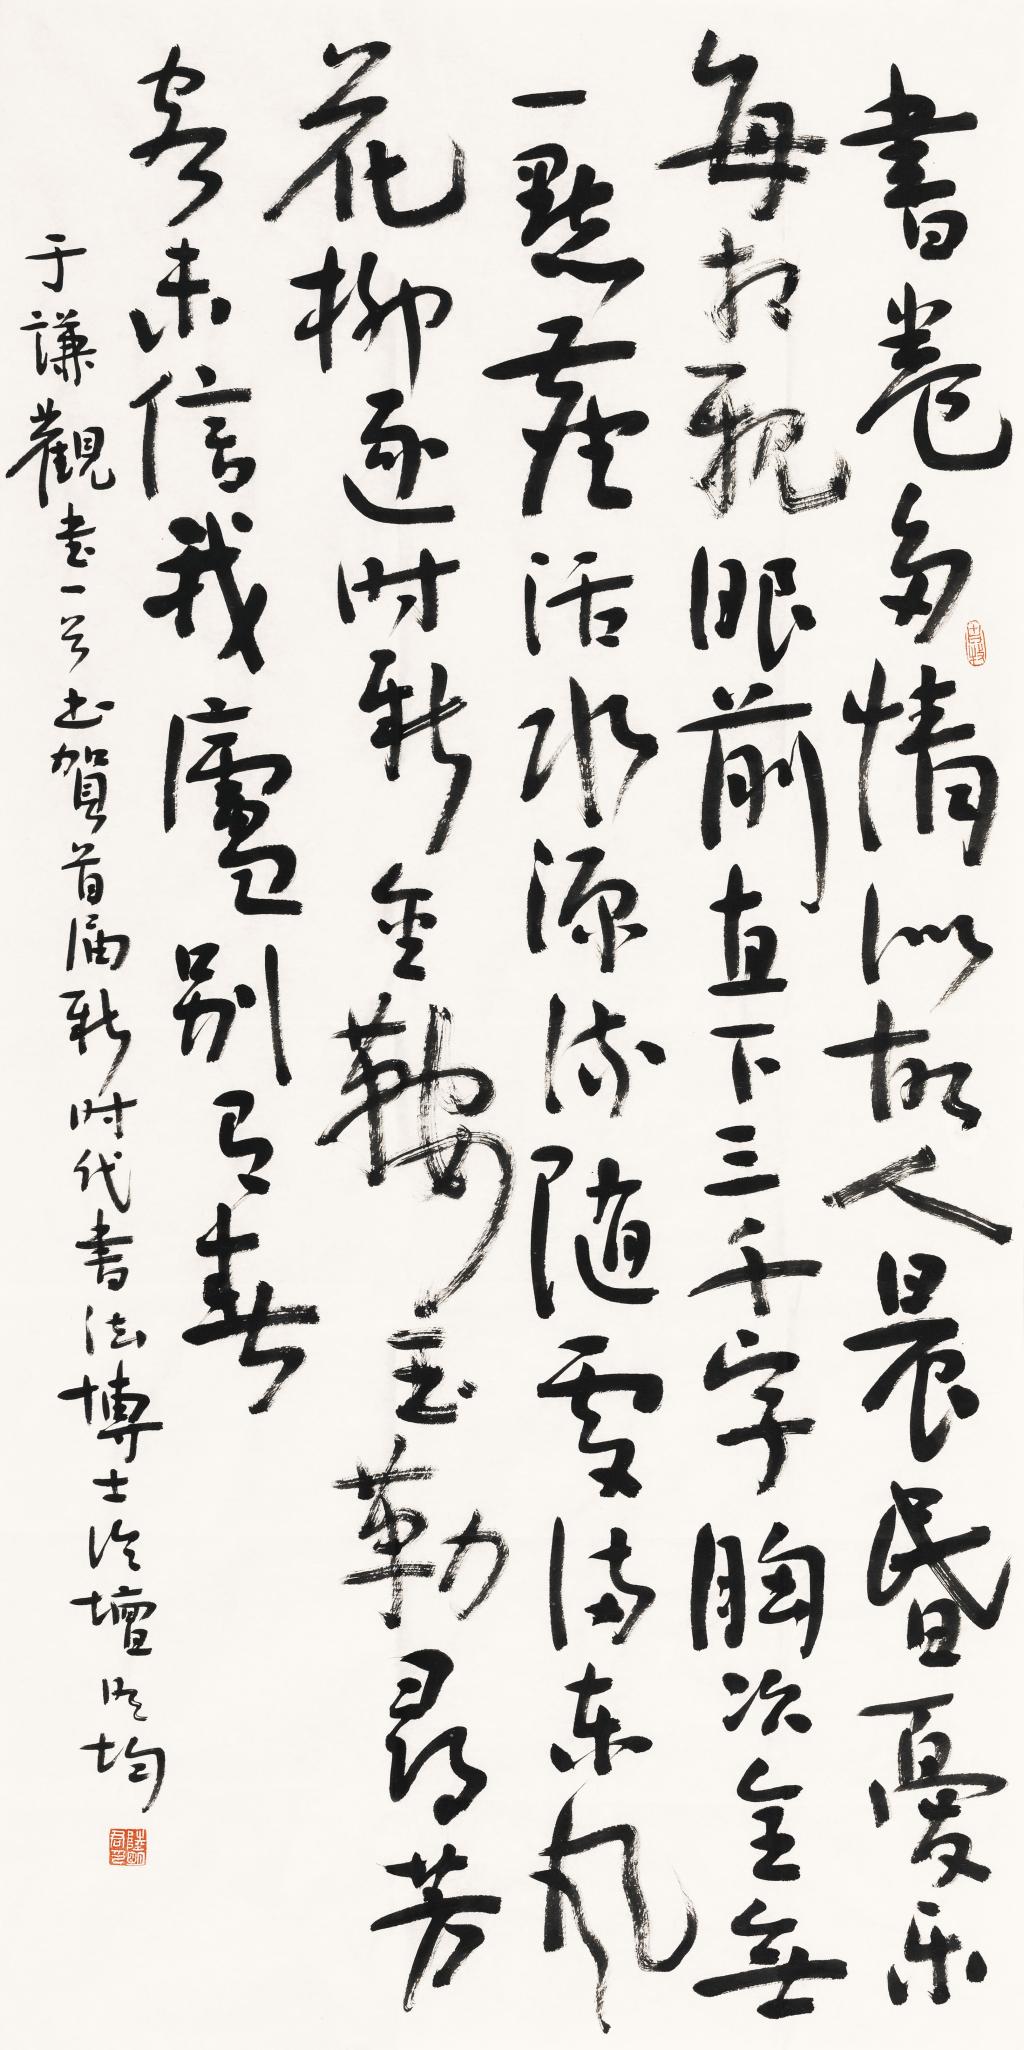 書卷多情似故人晨昏憂乐
每相親眼前直下三千字胸次全無
一點塵活水源流隨處滿东風
花柳逐时新金鞍玉勒尋芳
客未信我廬别有春
于謙觀書一首书賀首届新时代書法博士论壇明均